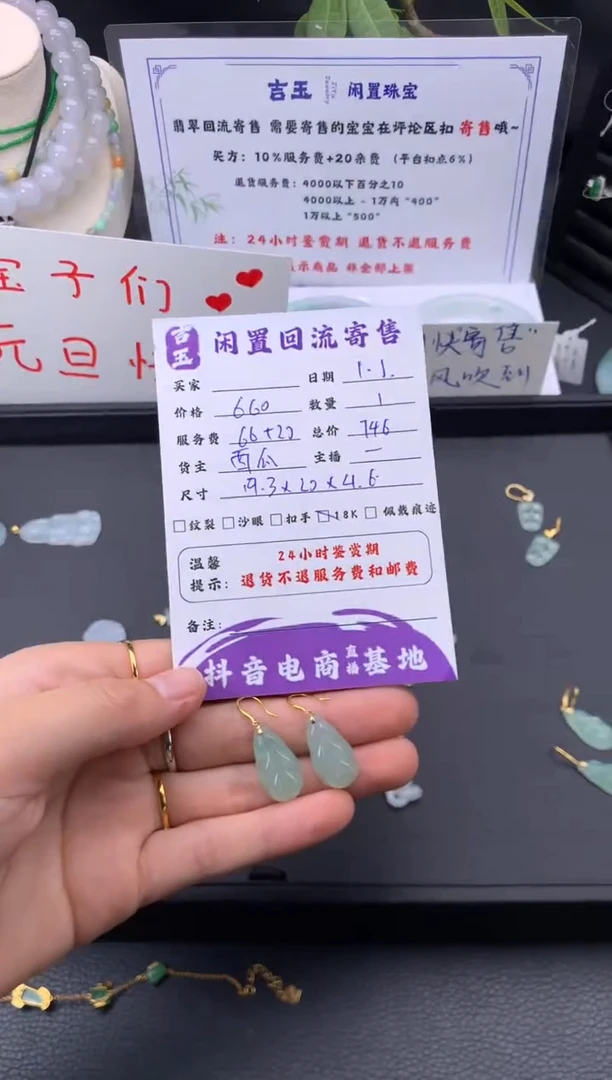 吉玉 闲置珠宝
翡翠回流寄售 需要寄售的宝宝在评论区扣 寄售哦~
买方：10%服务费+20杂费 （平台扣点6%）
退货服务费：4000以下百分之10
4000以上 - 1万内 "400"
1万以上 "500"
注：24小时鉴赏期 退货不退服务费
示商品 非全部上架
宝子们
元旦快
"快"寄售"
风吹到
吉玉 闲置回流寄售
买家 日期 1.1.
价格 660 数量 1
服务费 66+20 总价 746
货主 西瓜 主播 一
尺寸 19.3×20×4.6
□纹裂 □沙眼 □扣手 □18K □佩戴痕迹
温馨提示：
24小时鉴赏期
退货不退服务费和邮费
备注：
抖音电商直播基地